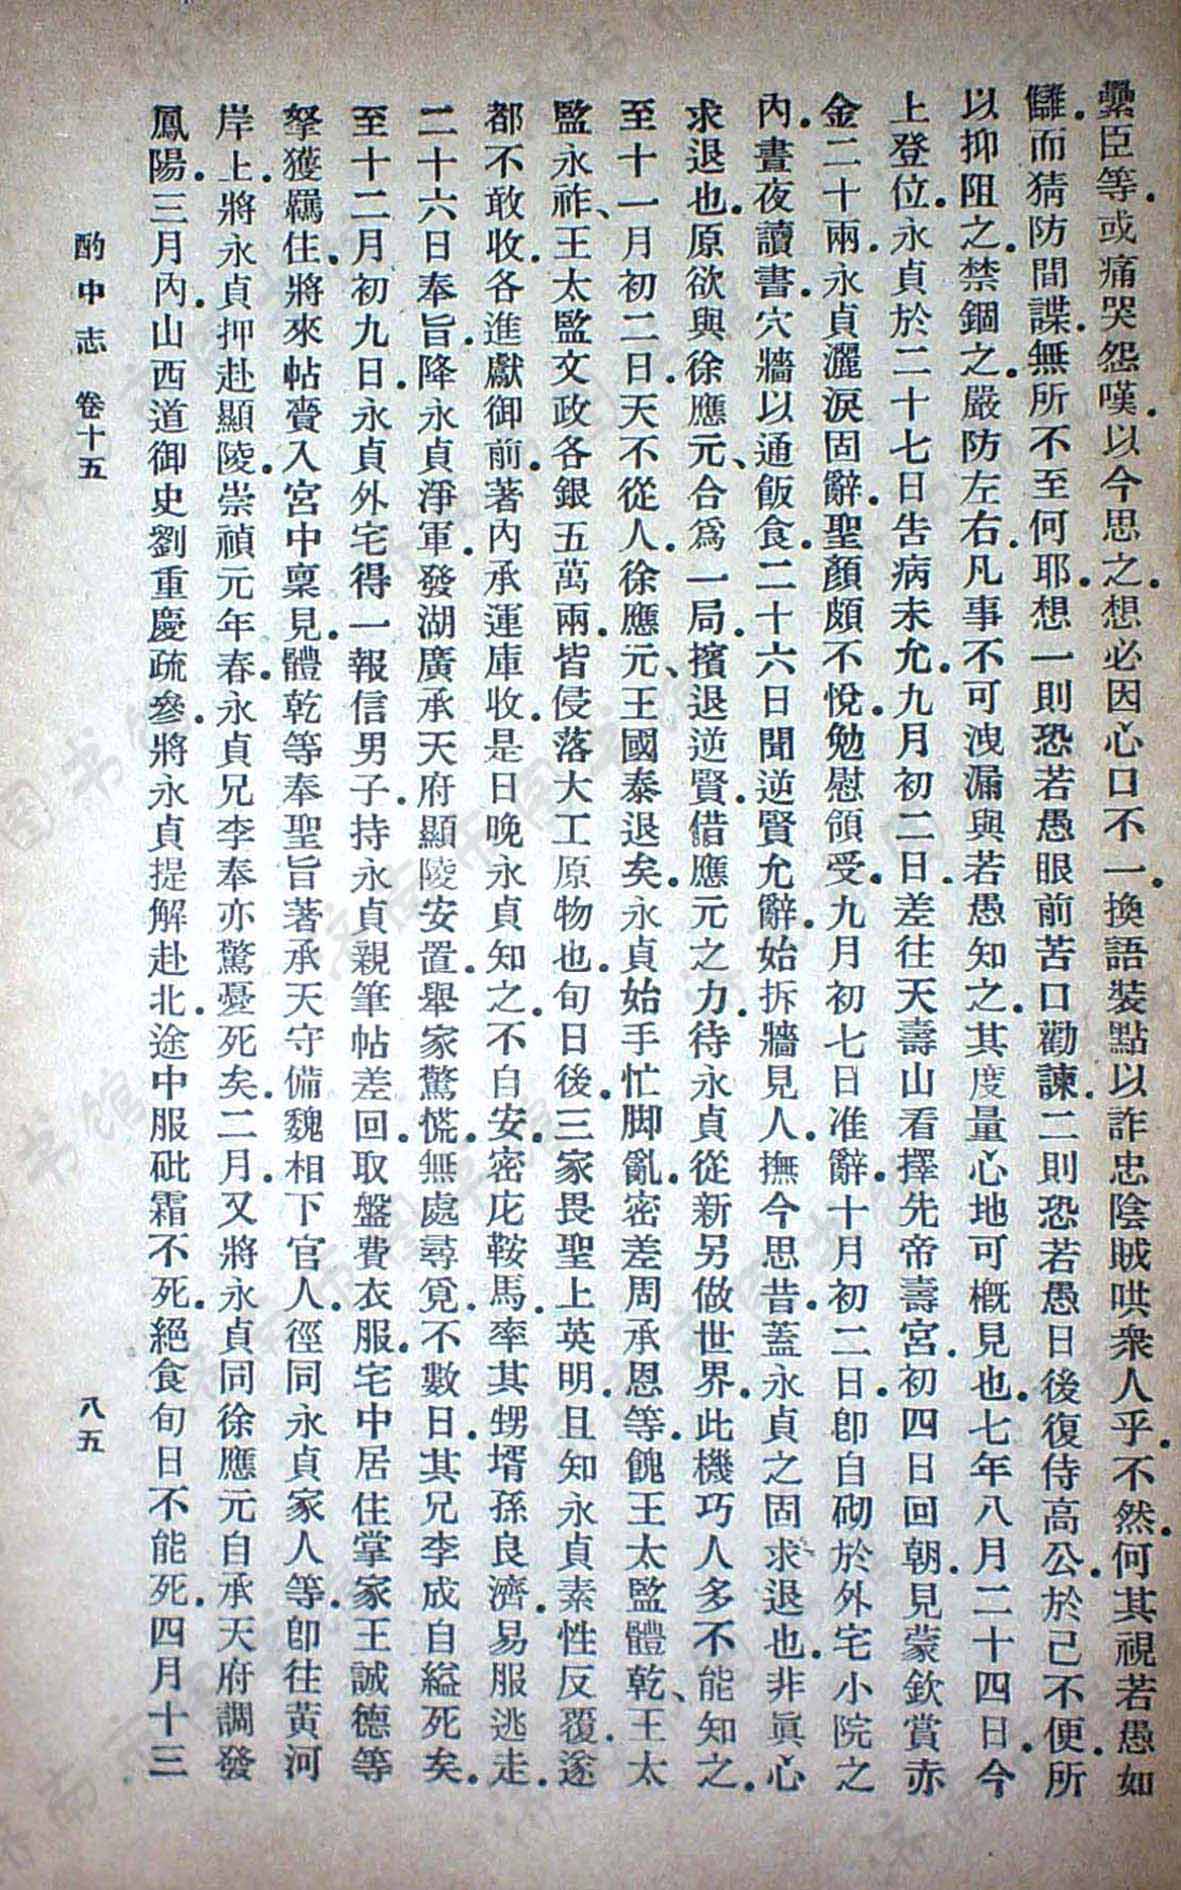 纍臣等或痛哭怨嘆以今思之想必因心口不一換語裝點以詐忠陰賊哄衆人乎不然何其視若愚如
讎而猜防間諜無所不至何耶想一則恐若愚眼前苦口勸諫二則恐若愚日後復侍高公於己不便所
以抑阻之禁錮之嚴防左右凡事不可洩漏與若愚知之其度量心地可槪見也七年八月二十四日今
上登位永貞於二十七日告病未允九月初二日差往天壽山看擇先帝壽宮初四日回朝見蒙欽賞赤
金二十兩永貞灑淚固辭聖顏頗不悅勉慰領受九月初七日准辭十月初二日卽自砌於外宅小院之
內晝夜讀書穴牆以通飯食二十六日聞逆賢允辭始拆牆見人撫今思昔蓋永貞之固求退也非眞心
求退也原欲與徐應元合爲一局擯退逆賢借應元之力待永貞從新另做世界此機巧人多不能知之
至十一月初二日天不從人徐應元、王國泰退矣永貞始手忙脚亂密差周承恩等餽王太監體乾、王太
監永祚、王太監文政各銀五萬兩皆侵落大工原物也旬日後三家畏聖上英明且知永貞素性反覆遂
都不敢收各進獻御前著內承運庫收是日晚永貞知之不自安密庀鞍馬率其甥壻孫良濟易服逃走
二十六日奉旨降永貞淨軍發湖廣承天府顯陵安置舉家驚慌無處尋覓不數日其兄李成自縊死矣
至十二月初九日永貞外宅得一報信男子持永貞親筆帖差回取盤費衣服宅中居住掌家王誠德等
拏獲羈住將來帖賫入宮中稟見體乾等奉聖旨著承天守備魏相下官人徑同永貞家人等卽往黃河
岸上將永貞押赴顯陵崇禎元年春永貞兄李奉亦驚憂死矣二月又將永貞同徐應元自承天府調發
鳳陽三月內山西道御史劉重慶疏參將永貞提解赴北途中服砒霜不死絕食旬日不能死四月十三
酌中志 卷十五 八五